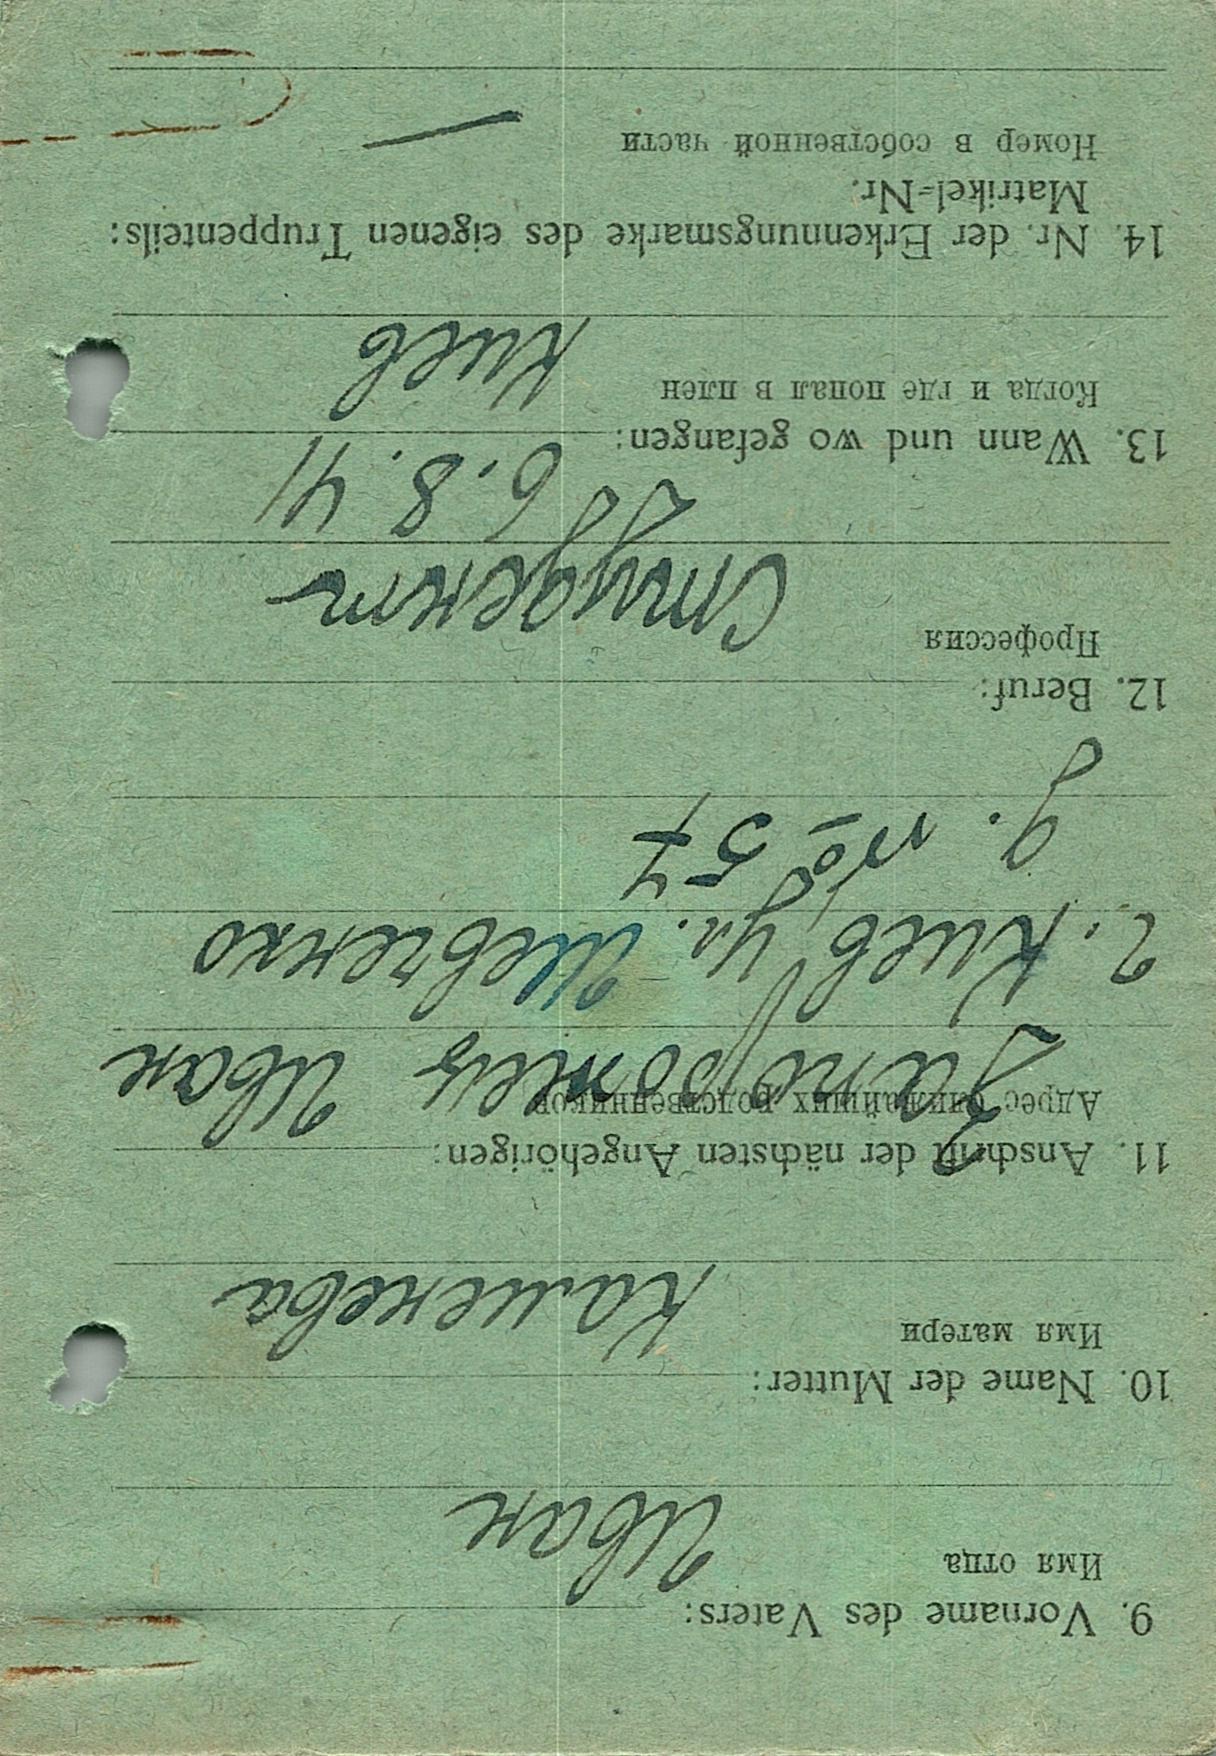 9. Vorname des Vaters:
Имя отца
Иван
10. Name der Mutter:
Имя матери
Каменева
11. Anschrift der nächsten Angehörigen:
Адрес ближайших родственников
Запорожец Иван
г. Киев, ул. Шевченко
д. № 57
12. Beruf:
Профессия
Студент
13. Wann und wo gefangen:
Когда и где попал в плен
26.8.41
Киев
14. Nr. der Erkennungsmarke des eigenen Truppenteils:
Matrikel-Nr.
Номер в собственной части
—